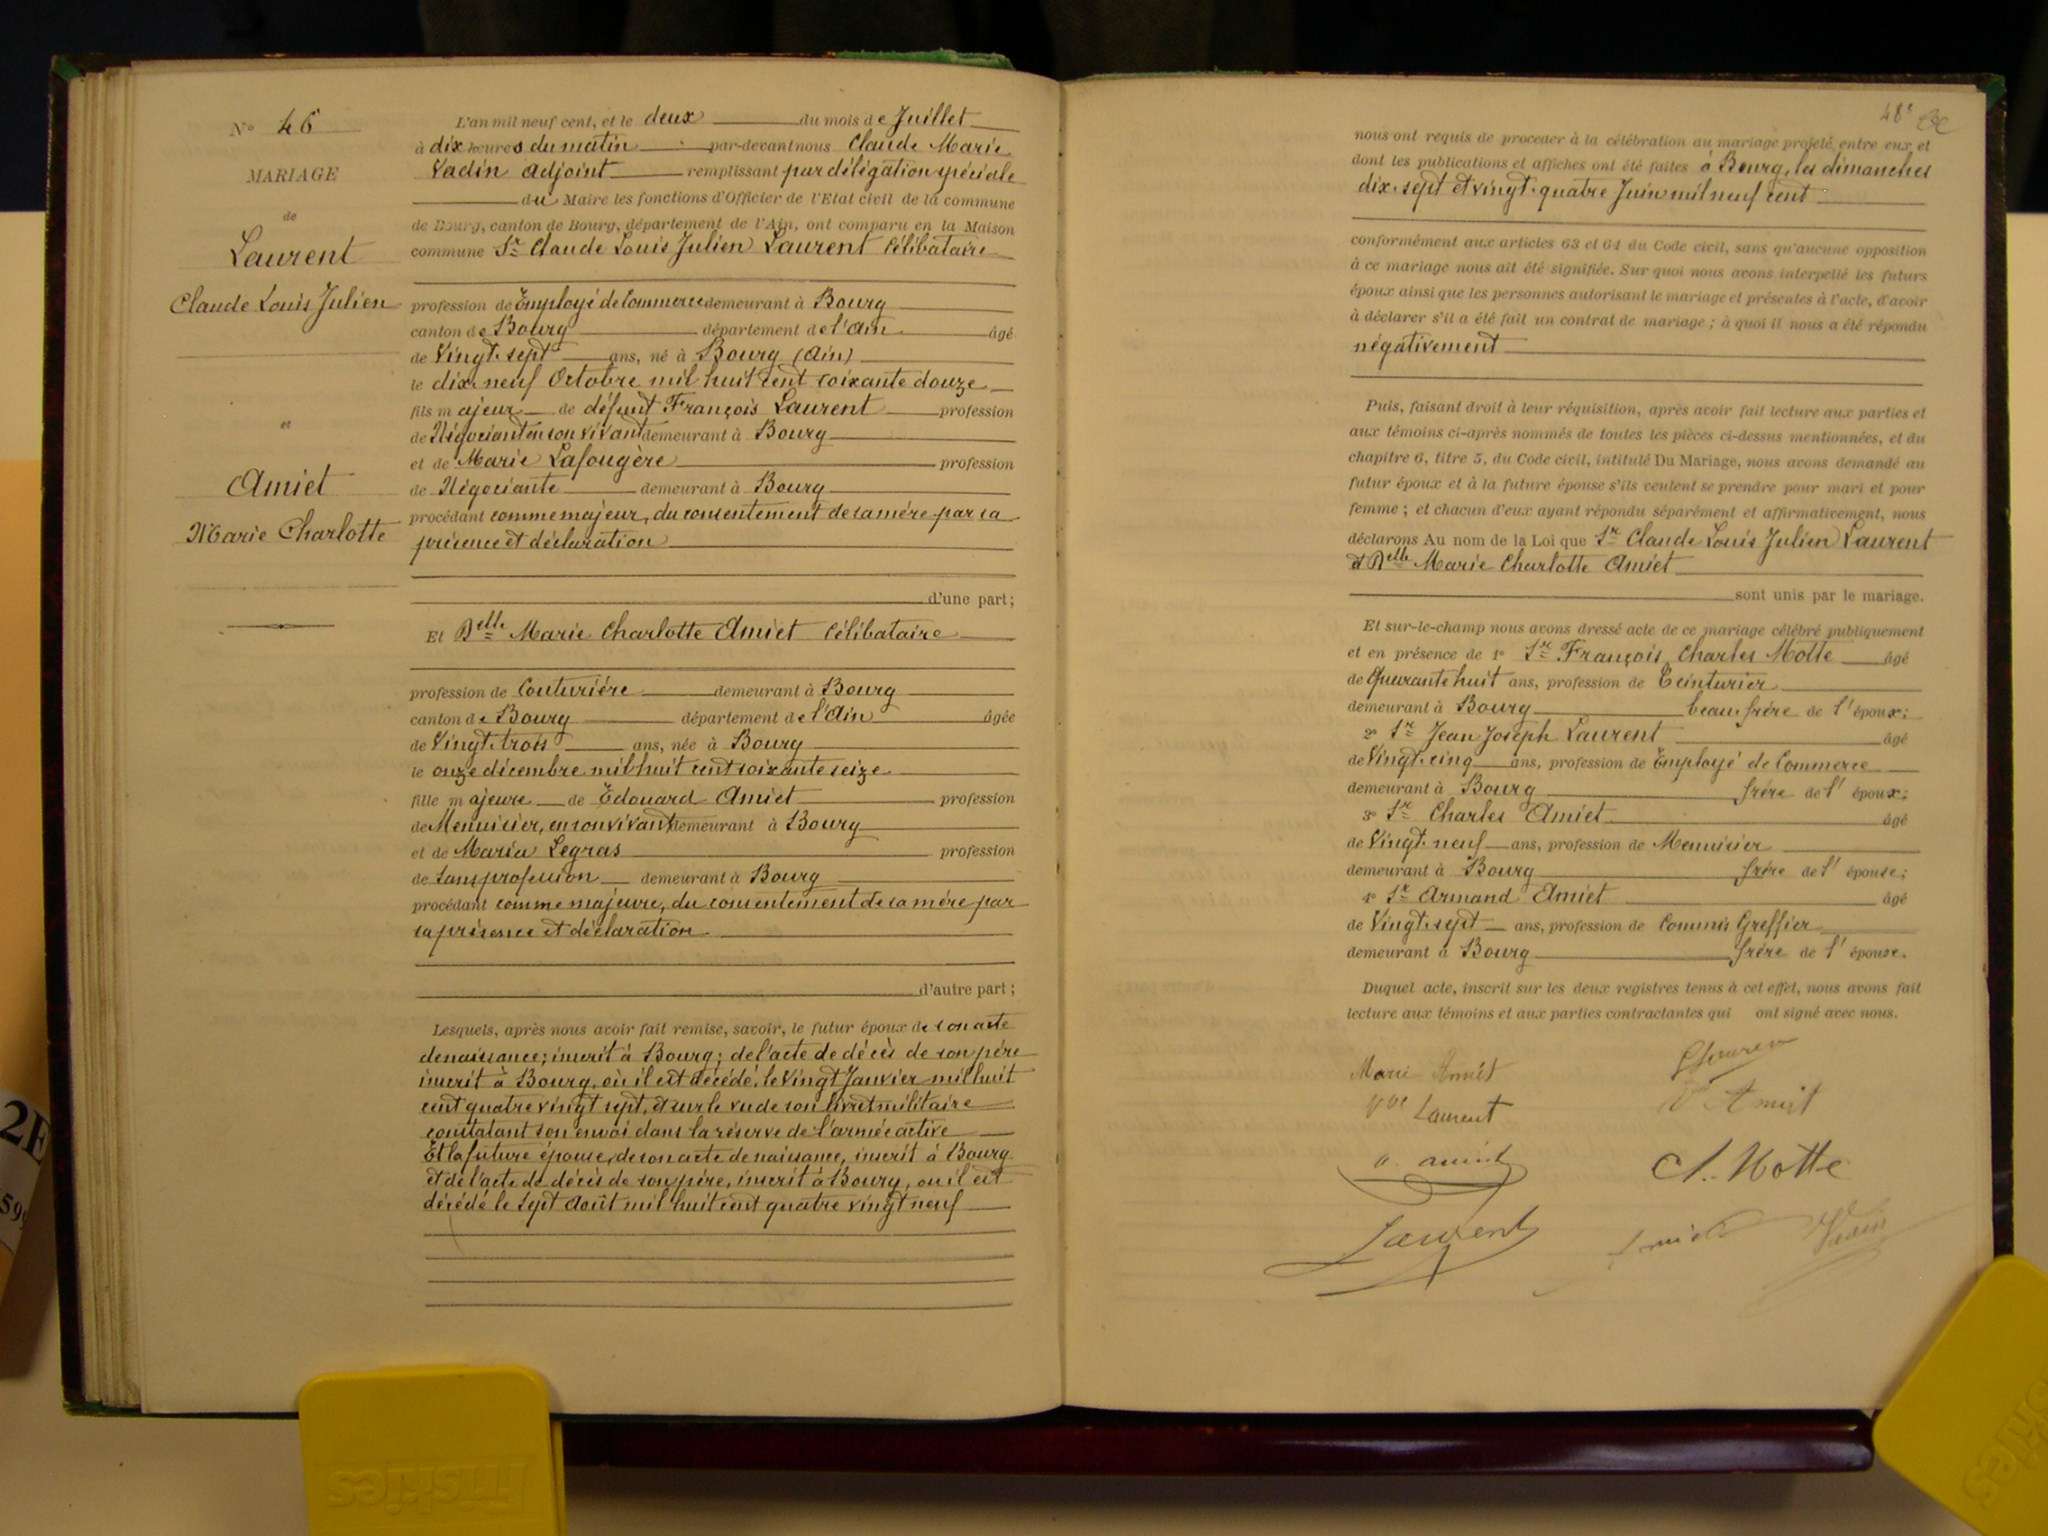 Nº 46
MARIAGE
de
Laurent
Claude Louis Julien
et
Amiet
Marie Charlotte
L'an mil neuf cent, et le deux du mois de Juillet
à dix heures du matin par-devant nous Claude Marie
Vadin adjoint remplissant par délégation spéciale
du Maire les fonctions d'Officier de l'Etat civil de la commune
de Bourg, canton de Bourg, département de l'Ain, ont comparu en la Maison
commune Sr Claude Louis Julien Laurent Célibataire
profession de Employé de Commerce demeurant à Bourg
canton de Bourg département de l'Ain âgé
de Vingt-sept ans, né à Bourg (Ain)
le dix-neuf Octobre mil huit cent soixante douze
fils majeur de défunt François Laurent profession
de Négociant en son vivant demeurant à Bourg
et de Marie Lafougère profession
de Négociante demeurant à Bourg
procédant comme majeur, du consentement de sa mère par sa
présence et déclaration
d'une part;
Et Delle Marie Charlotte Amiet Célibataire
profession de Couturière demeurant à Bourg
canton de Bourg département de l'Ain âgée
de Vingt-trois ans, née à Bourg
le onze décembre mil huit cent soixante seize
fille majeure de Edouard Amiet profession
de Menuisier, en son vivant demeurant à Bourg
et de Maria Legras profession
de Sans profession demeurant à Bourg
procédant comme majeure, du consentement de sa mère par
sa présence et déclaration
d'autre part;
Lesquels, après nous avoir fait remise, savoir, le futur époux de son acte
de naissance; inscrit à Bourg; de l'acte de décès de son père
inscrit à Bourg, où il est décédé, le Vingt Janvier mil huit
cent quatre vingt sept, et sur le vu de son livret militaire
constatant son envoi dans la réserve de l'armée active
Et la future épouse, de son acte de naissance, inscrit à Bourg
et de l'acte de décès de son père, inscrit à Bourg, où il est
décédé le Sept Août mil huit cent quatre vingt neuf
48e
nous ont requis de procéder à la célébration du mariage projeté entre eux et
dont les publications et affiches ont été faites à Bourg, les dimanches
dix-sept et vingt-quatre Juin mil neuf cent
conformément aux articles 63 et 64 du Code civil, sans qu'aucune opposition
à ce mariage nous ait été signifiée. Sur quoi nous avons interpellé les futurs
époux ainsi que les personnes autorisant le mariage et présentes à l'acte, d'avoir
à déclarer s'il a été fait un contrat de mariage; à quoi il nous a été répondu
négativement
Puis, faisant droit à leur réquisition, après avoir fait lecture aux parties et
aux témoins ci-après nommés de toutes les pièces ci-dessus mentionnées, et du
chapitre 6, titre 5, du Code civil, intitulé Du Mariage, nous avons demandé au
futur époux et à la future épouse s'ils veulent se prendre pour mari et pour
femme; et chacun d'eux ayant répondu séparément et affirmativement, nous
déclarons Au nom de la Loi que Sr Claude Louis Julien Laurent
et Delle Marie Charlotte Amiet
sont unis par le mariage.
Et sur-le-champ nous avons dressé acte de ce mariage célébré publiquement
et en présence de 1º Sr François Charles Motte âgé
de Quarante huit ans, profession de Teinturier
demeurant à Bourg beau-frère de l'époux;
2º Sr Jean Joseph Laurent âgé
de Vingt-cinq ans, profession de Employé de Commerce
demeurant à Bourg frère de l'époux;
3º Sr Charles Amiet âgé
de Vingt-neuf ans, profession de Menuisier
demeurant à Bourg frère de l'épouse;
4º Sr Armand Amiet âgé
de Vingt-sept ans, profession de Commis Greffier
demeurant à Bourg frère de l'épouse.
Duquel acte, inscrit sur les deux registres tenus à cet effet, nous avons fait
lecture aux témoins et aux parties contractantes qui ont signé avec nous.
Marie Amiet
Vve Laurent
Ve Amiet
a. amiet
Ch. Motte
Laurent
Amiet
Vadin
2E
59